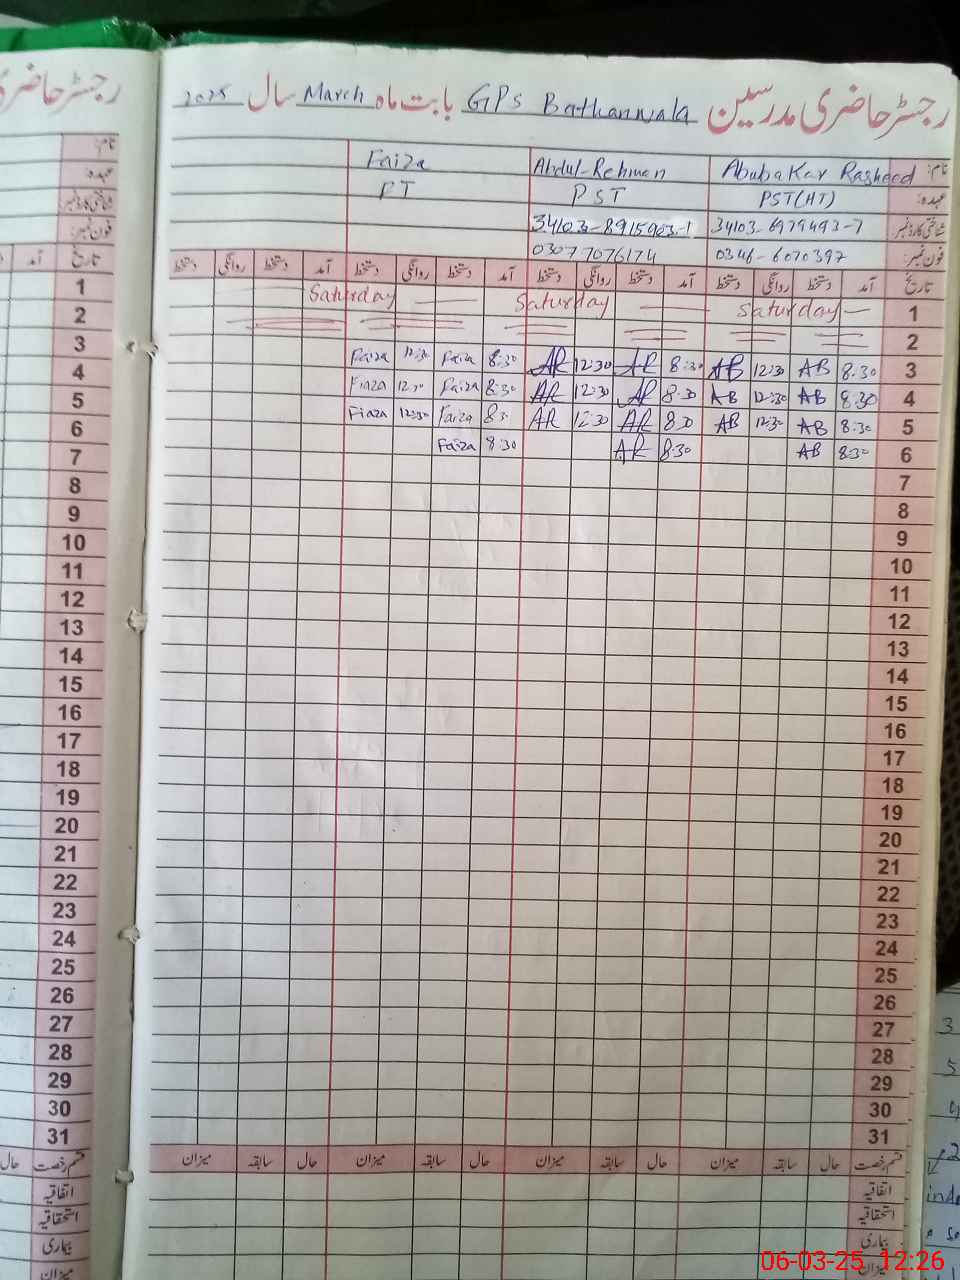 رجسٹر حاضری مدرسین GPS Bathanwala بابت ماہ March سال 2025
نام: Abubakar Rasheed Abdul-Rehman Faiza
عہدہ: PST(HT) PST PT
شناختی کارڈ نمبر 34103-6979493-7 34103-8915903-1
فون نمبر: 0346-6070397 03077076174
تاریخ آمد دستخط روانگی دستخط آمد دستخط روانگی دستخط آمد دستخط روانگی دستخط آمد دستخط روانگی دستخط
1 Saturday Saturday Saturday
2
3 8:30 AB 12:30 AB 8:30 AR 12:30 AR 8:30 Faiza 12:30 Faiza
4 8:30 AB 12:30 AB 8:30 AR 12:30 AR 8:30 Faiza 12:30 Fiaza
5 8:30 AB 12:30 AB 8:30 AR 12:30 AR 8:30 Faiza 12:30 Fiaza
6 8:30 AB 8:30 AR 8:30 Faiza
7
8
9
10
11
12
13
14
15
16
17
18
19
20
21
22
23
24
25
26
27
28
29
30
31
قسم رخصت حال سابقہ میزان حال سابقہ میزان حال سابقہ میزان حال سابقہ میزان
اتفاقیہ
استحقاقیہ
بیماری
میزان
رجسٹر حاضری
نام:
عہدہ:
شناختی کارڈ نمبر
فون نمبر:
تاریخ آمد
1
2
3
4
5
6
7
8
9
10
11
12
13
14
15
16
17
18
19
20
21
22
23
24
25
26
27
28
29
30
31
قسم رخصت حال
اتفاقیہ
استحقاقیہ
بیماری
میزان
06-03-25 12:26